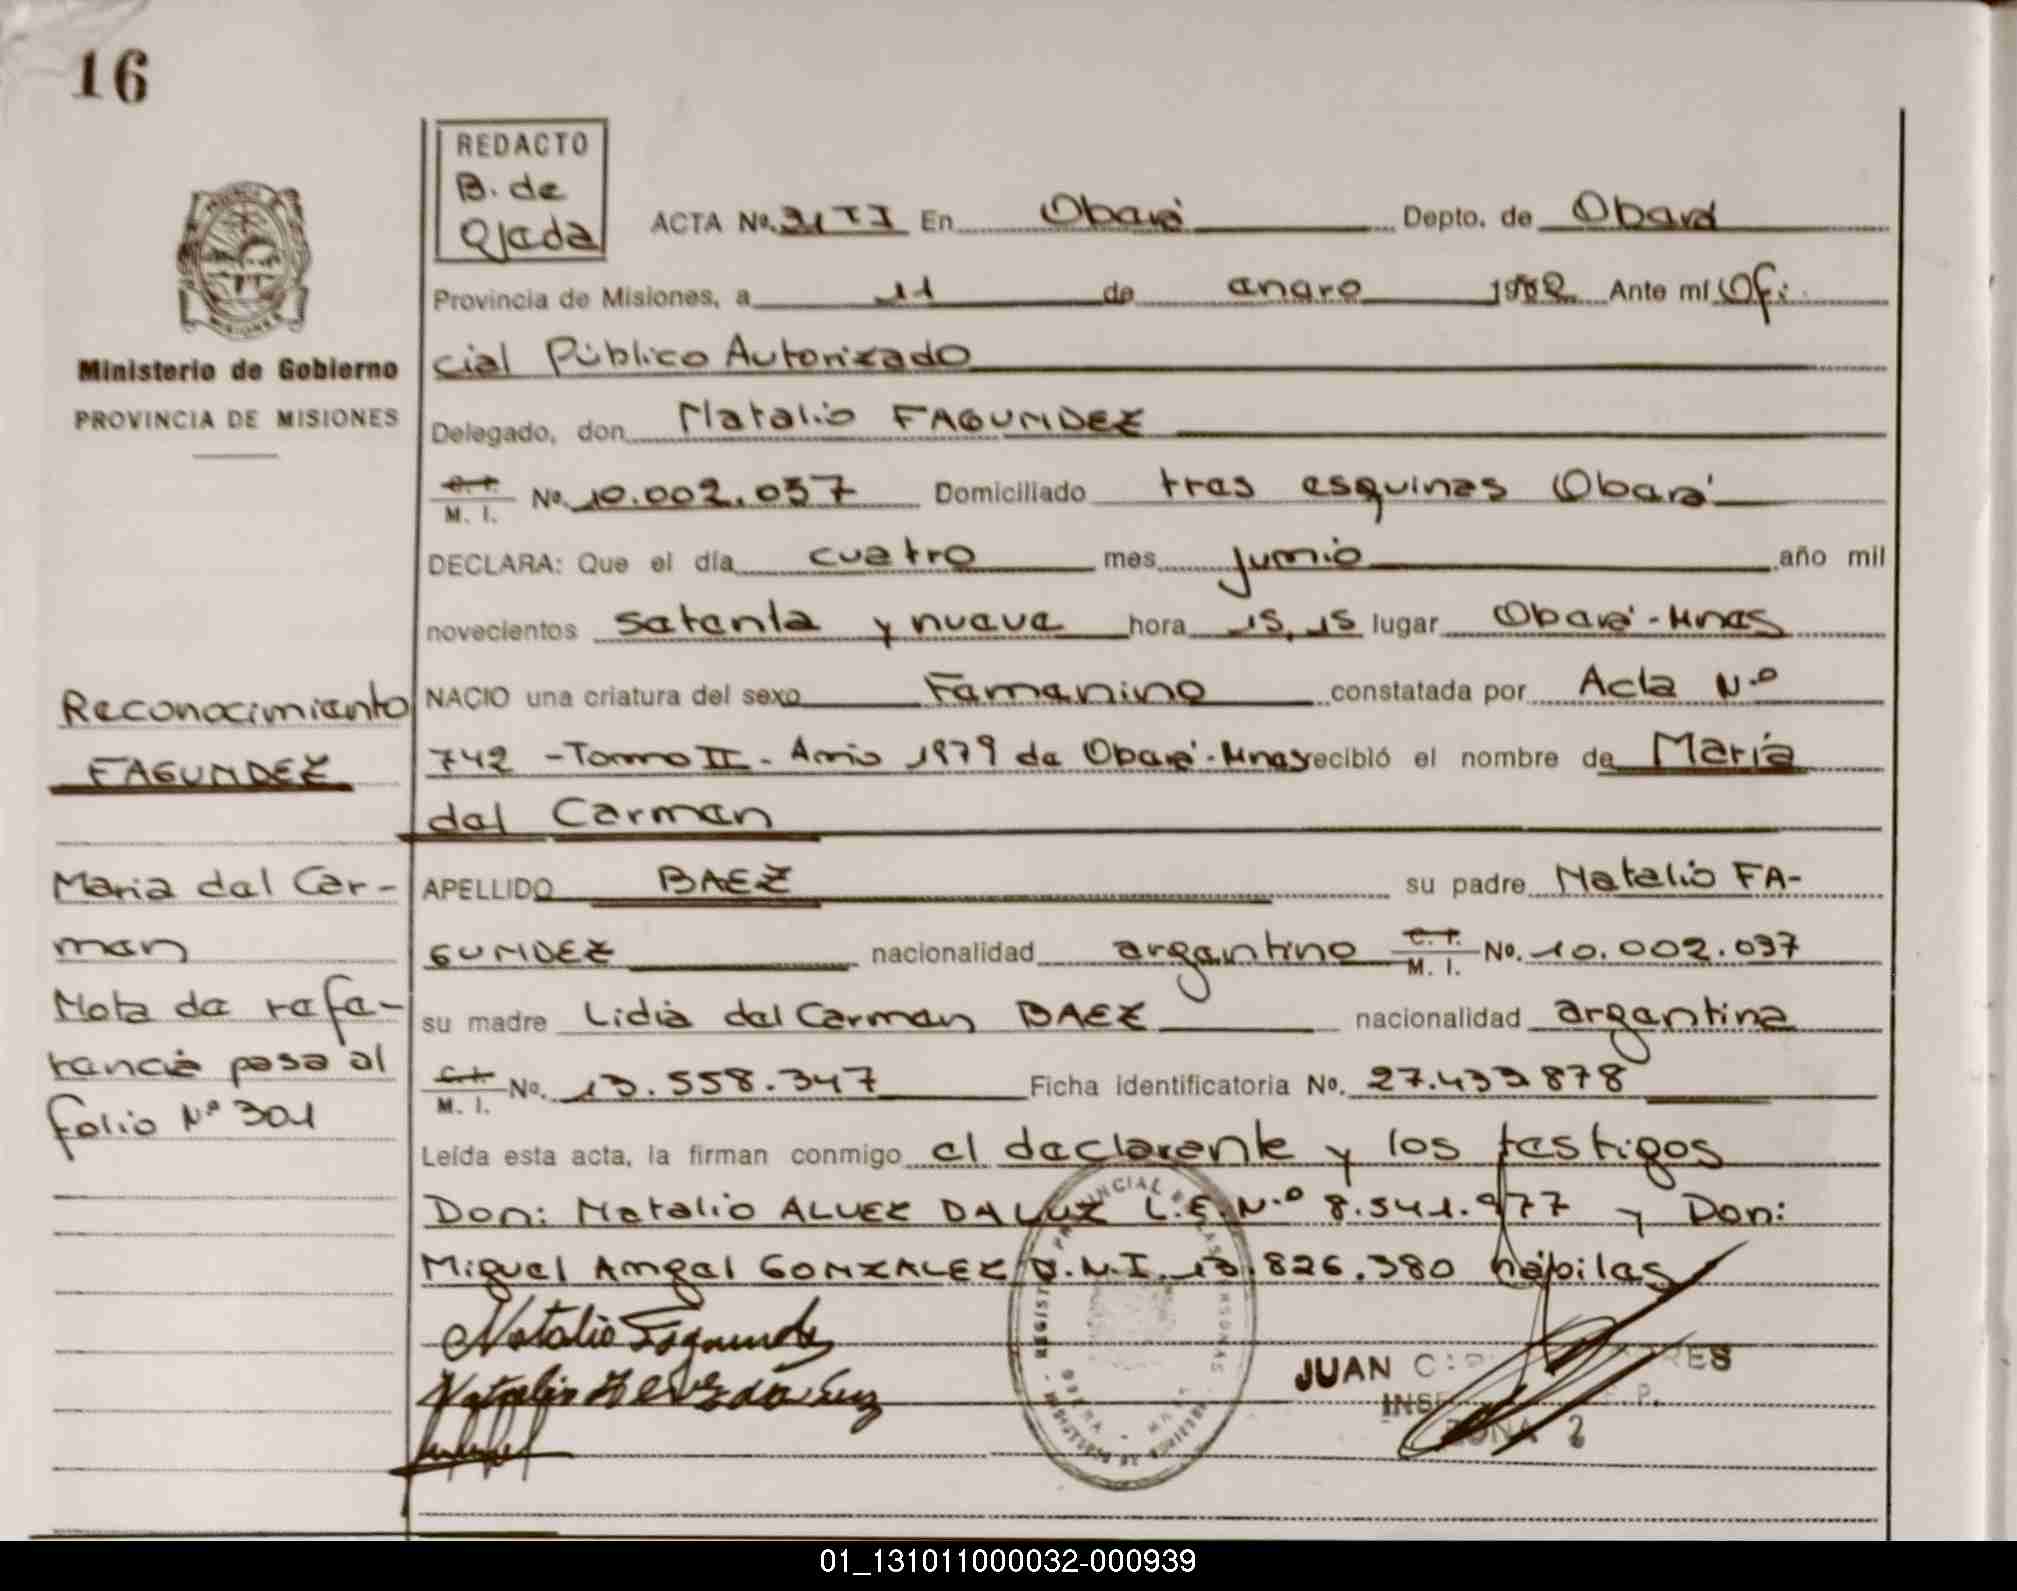 16
REDACTO
B. de
Ojeda
ACTA No. 31 TI En Oberá Depto. de Oberá
Provincia de Misiones, a 11 de enero 1982 Ante mí Ofi-
cial Público Autorizado
Ministerio de Gobierno
PROVINCIA DE MISIONES
Delegado, don Natalio FAGUNDEZ
C. I. M. I. No. 10.002.037 Domiciliado tres esquinas Oberá
DECLARA: Que el día cuatro mes junio año mil
novecientos setenta y nueve hora 15,15 lugar Oberá - Mnes
NACIO una criatura del sexo Femenino constatada por Acta N.º
742 - Tomo II - Año 1979 de Oberá - Mnes recibió el nombre de María
del Carmen
Reconocimiento
FAGUNDEZ
Maria del Car-
men
Nota de refe-
rencia pasa al
folio Nº 301
APELLIDO BAEZ su padre Natalio FA-
GUNDEZ nacionalidad argentino C. I. M. I. No. 10.002.037
su madre Lidia del Carmen BAEZ nacionalidad argentina
C. I. M. I. No. 13.558.347 Ficha identificatoria No. 27.433878
Leída esta acta, la firman conmigo el declarente y los testigos
Don: Natalio ALVEZ DA LUZ L.E. N.º 8.541.977 y Don:
Miguel Angel GONZALEZ D.N.I. 13.826.380 hábiles
Natalio Fagundez
Natalio Alvez da Luz
JUAN
ZONA 2
01_131011000032-000939